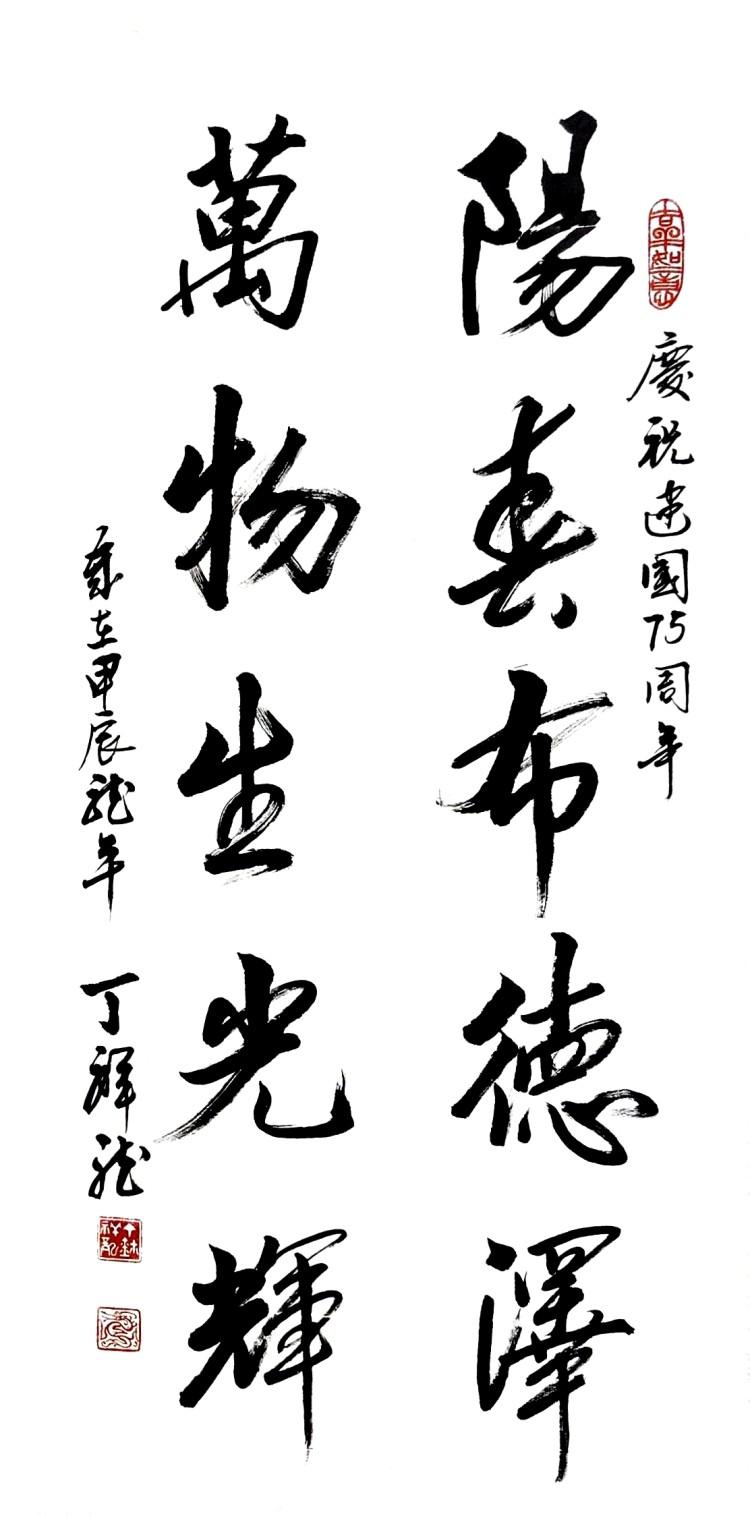 慶祝建國75周年
陽春布德澤
萬物生光輝
歲在甲辰龍年 丁祥龍